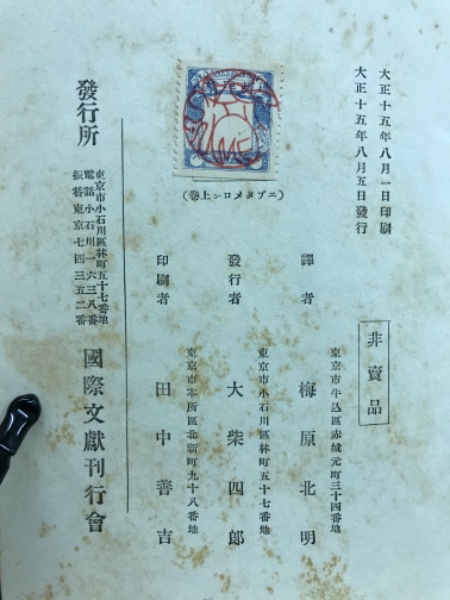 大正十五年八月一日印刷
大正十五年八月五日發行
非賣品
譯者
東京市牛込區赤城元町三十四番地
梅原北明
發行者
東京市小石川區林町五十七番地
大柴四郎
印刷者
東京市本所區北新町九十八番地
田中善吉
(エプタメロン上卷)
發行所
東京市小石川區林町五十七番地
電話小石川一六三八番
振替東京七四三五二番
國際文獻刊行會